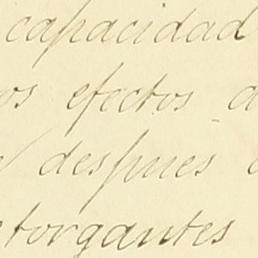 capacidad
os efectos a
despues
otorgantes